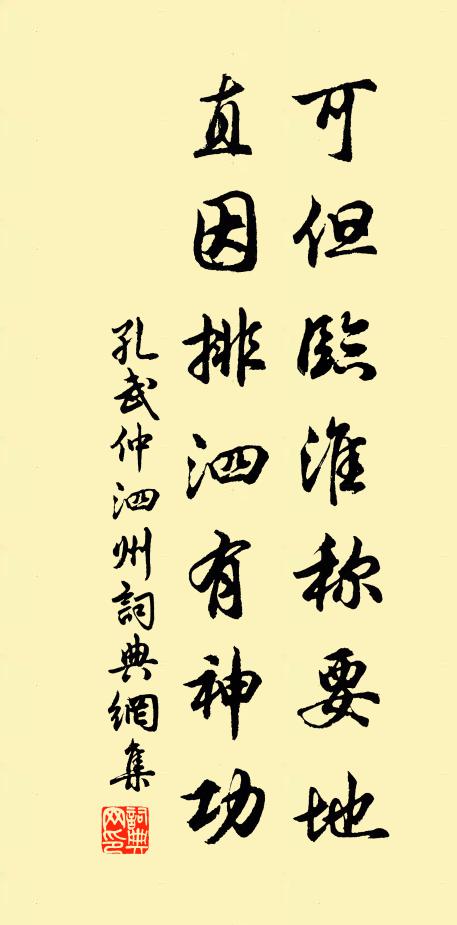 可但臨淮称要地
直因排泗有神功
孔武仲泗州詞典網集
詞典网印